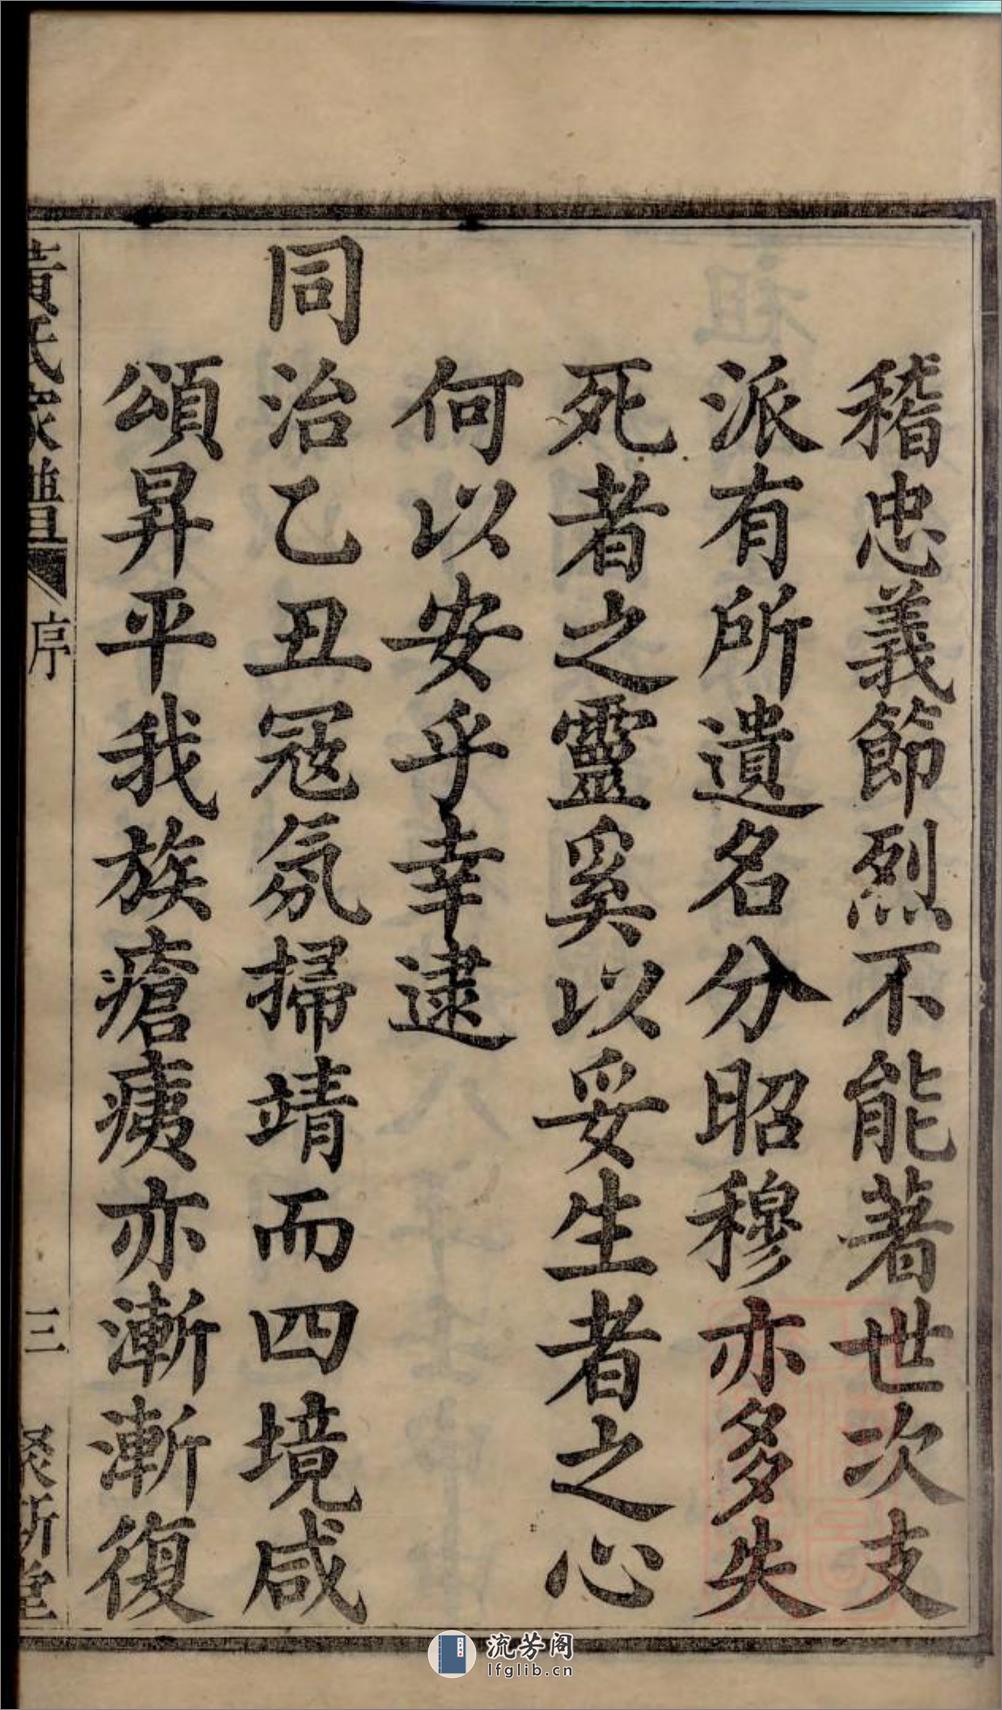 稽忠義節烈不能著世次支
派有所遺名分昭穆亦多失
死者之靈奚以妥生者之心
何以安乎幸逮
同治乙丑冦氛掃靖而四境咸
頌昇平我族瘡痍亦漸漸復
黃氏家譜
序
三
堂
流芳阁
lfglib.cn